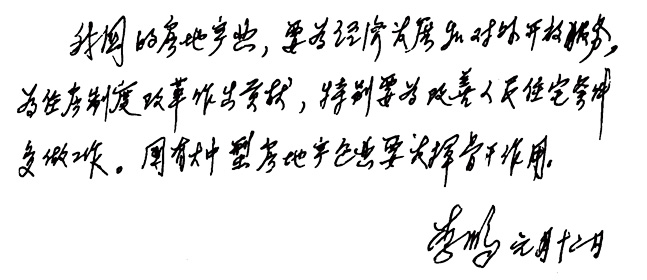 我国的房地产业，要为经济发展和对外开放服务，
为住房制度改革作出贡献，特别要为改善人民住宅条件
多做工作。国有大中型房地产企业要发挥骨干作用。
李鹏 元月十二日